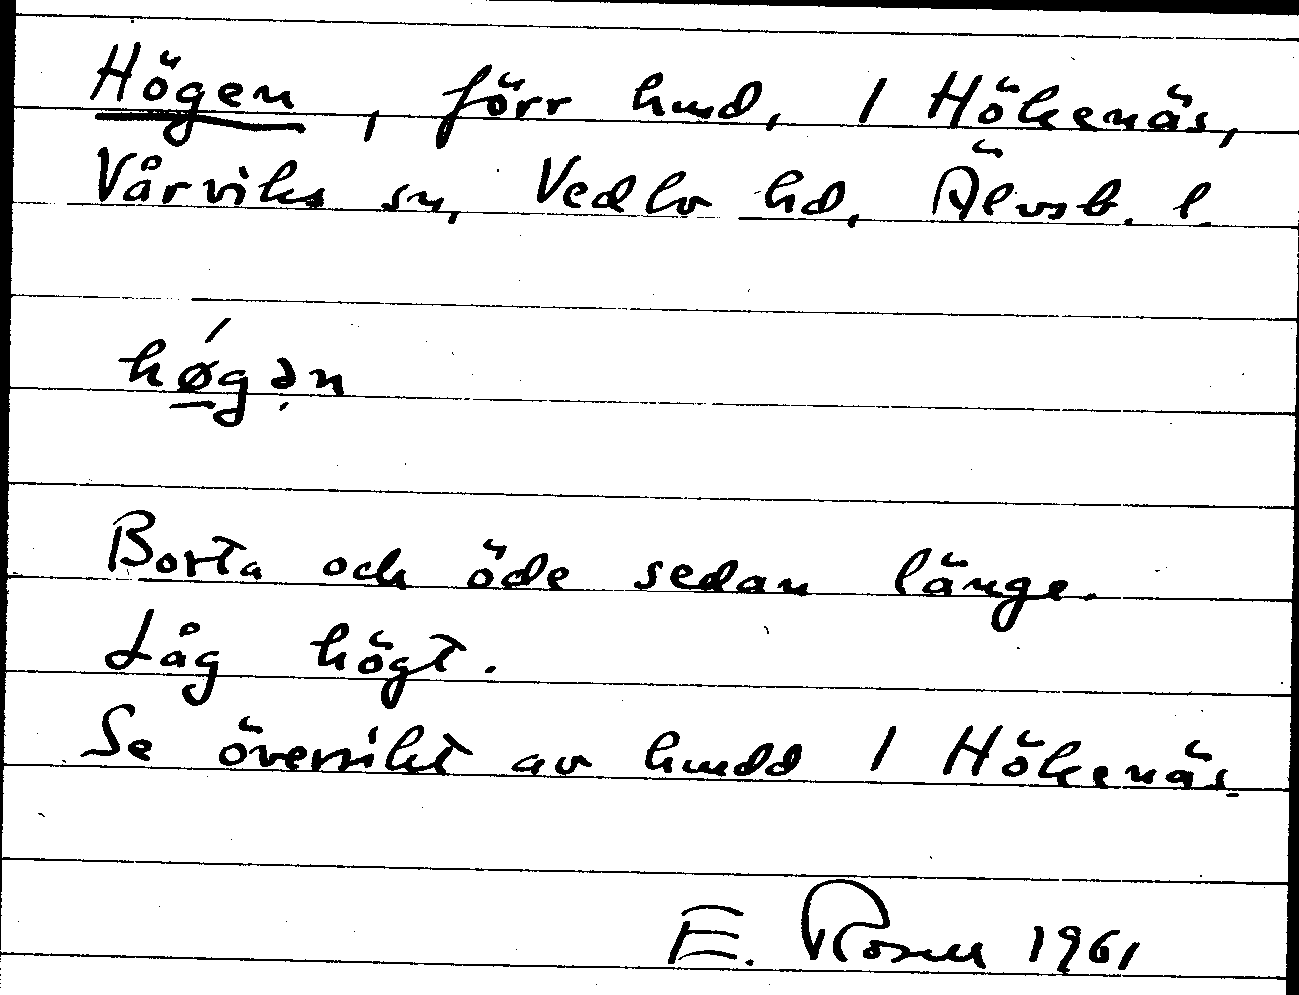 Högen, förr hmd, / Hökenäs,
Vårviks sn, Vedbo hd, Älvsb. l.
hǿ̱gə̣n
Borta och öde sedan länge.
Låg högt.
Se översikt av hmdd / Hökenäs.
E. Rosell 1961